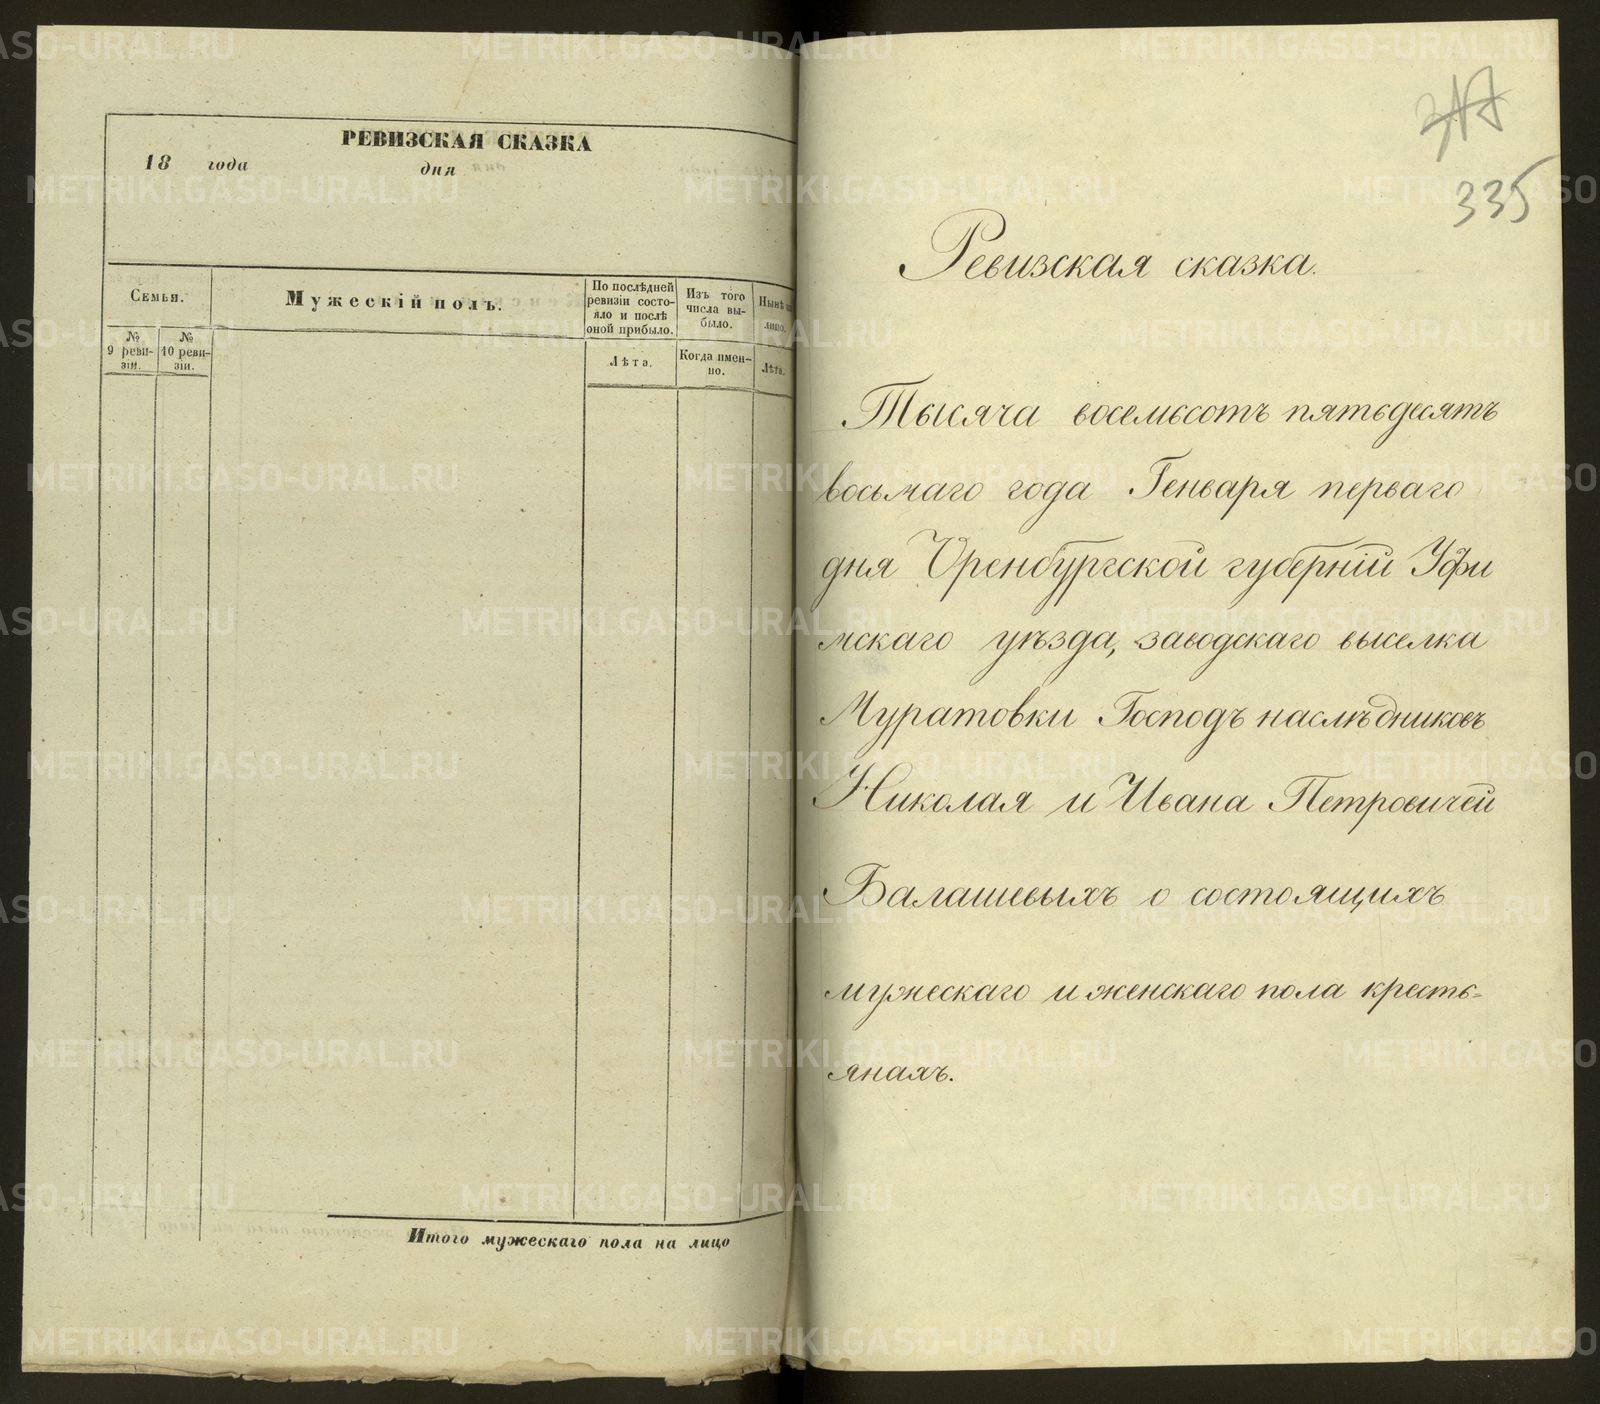 РЕВИЗСКАЯ СКАЗКА
18 года дня
Семья.
Мужескій полъ.
По послѣдней ревизіи состояло и послѣ оной прибыло.
Изъ того числа выбыло.
Нынѣ на лицо.
№ 9 ревизіи.
№ 10 ревизіи.
Лѣта.
Когда именно.
Лѣта.
Итого мужескаго пола на лицо
335
Ревизская сказка.
Тысяча восемьсотъ пятьдесятъ
восьмаго года Генваря перваго
дня Оренбургской губерніи Уфи
мскаго уѣзда, заводскаго выселка
Муратовки Господъ наслѣдниковъ
Николая и Ивана Петровичей
Балашевыхъ о состоящихъ
мужескаго и женскаго пола кресть=
янахъ.
METRIKI.GASO-URAL.RU